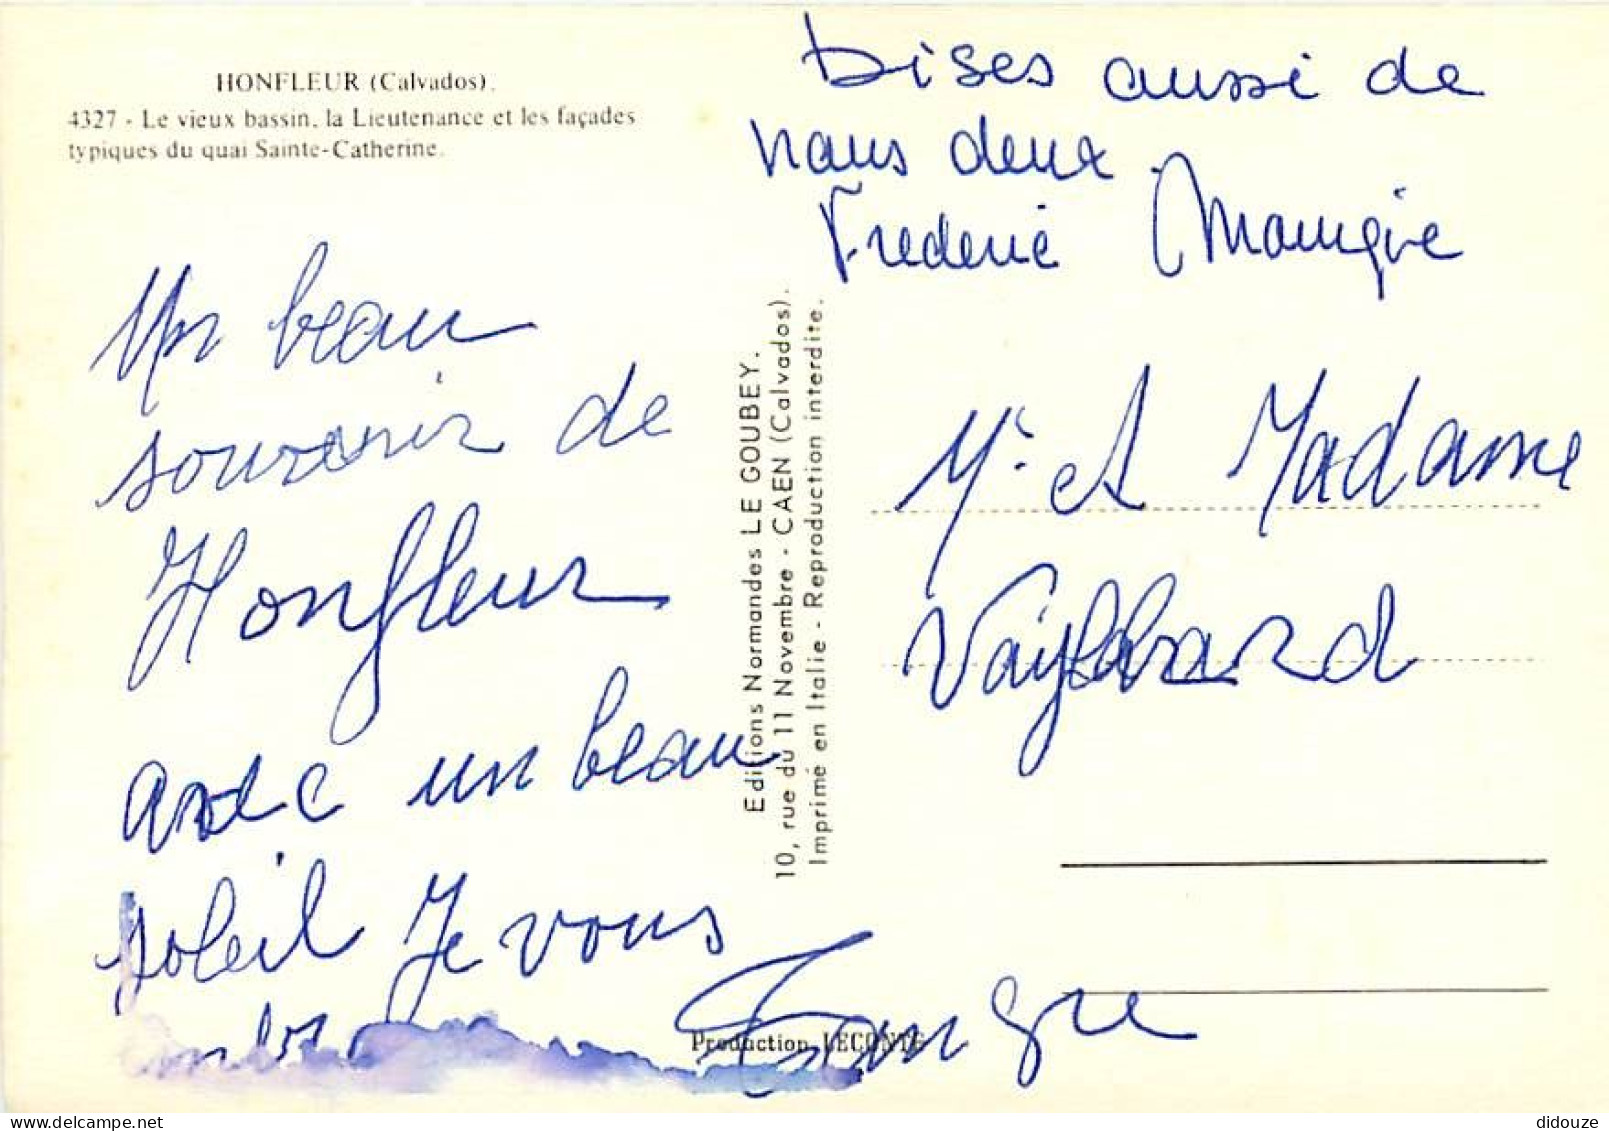 HONFLEUR (Calvados).
4327 - Le vieux bassin, la Lieutenance et les façades
typiques du quai Sainte-Catherine.
bises aussi de
nous deux.
Frederic
Un beau
souvenir de
Honfleur
avec un beau
soleil Je vous
Editions Normandes LE GOUBEY.
10, rue du 11 Novembre - CAEN (Calvados).
Imprimé en Italie - Reproduction interdite.
Mr et Madame
Production LECONTE
delcampe.net
didouze